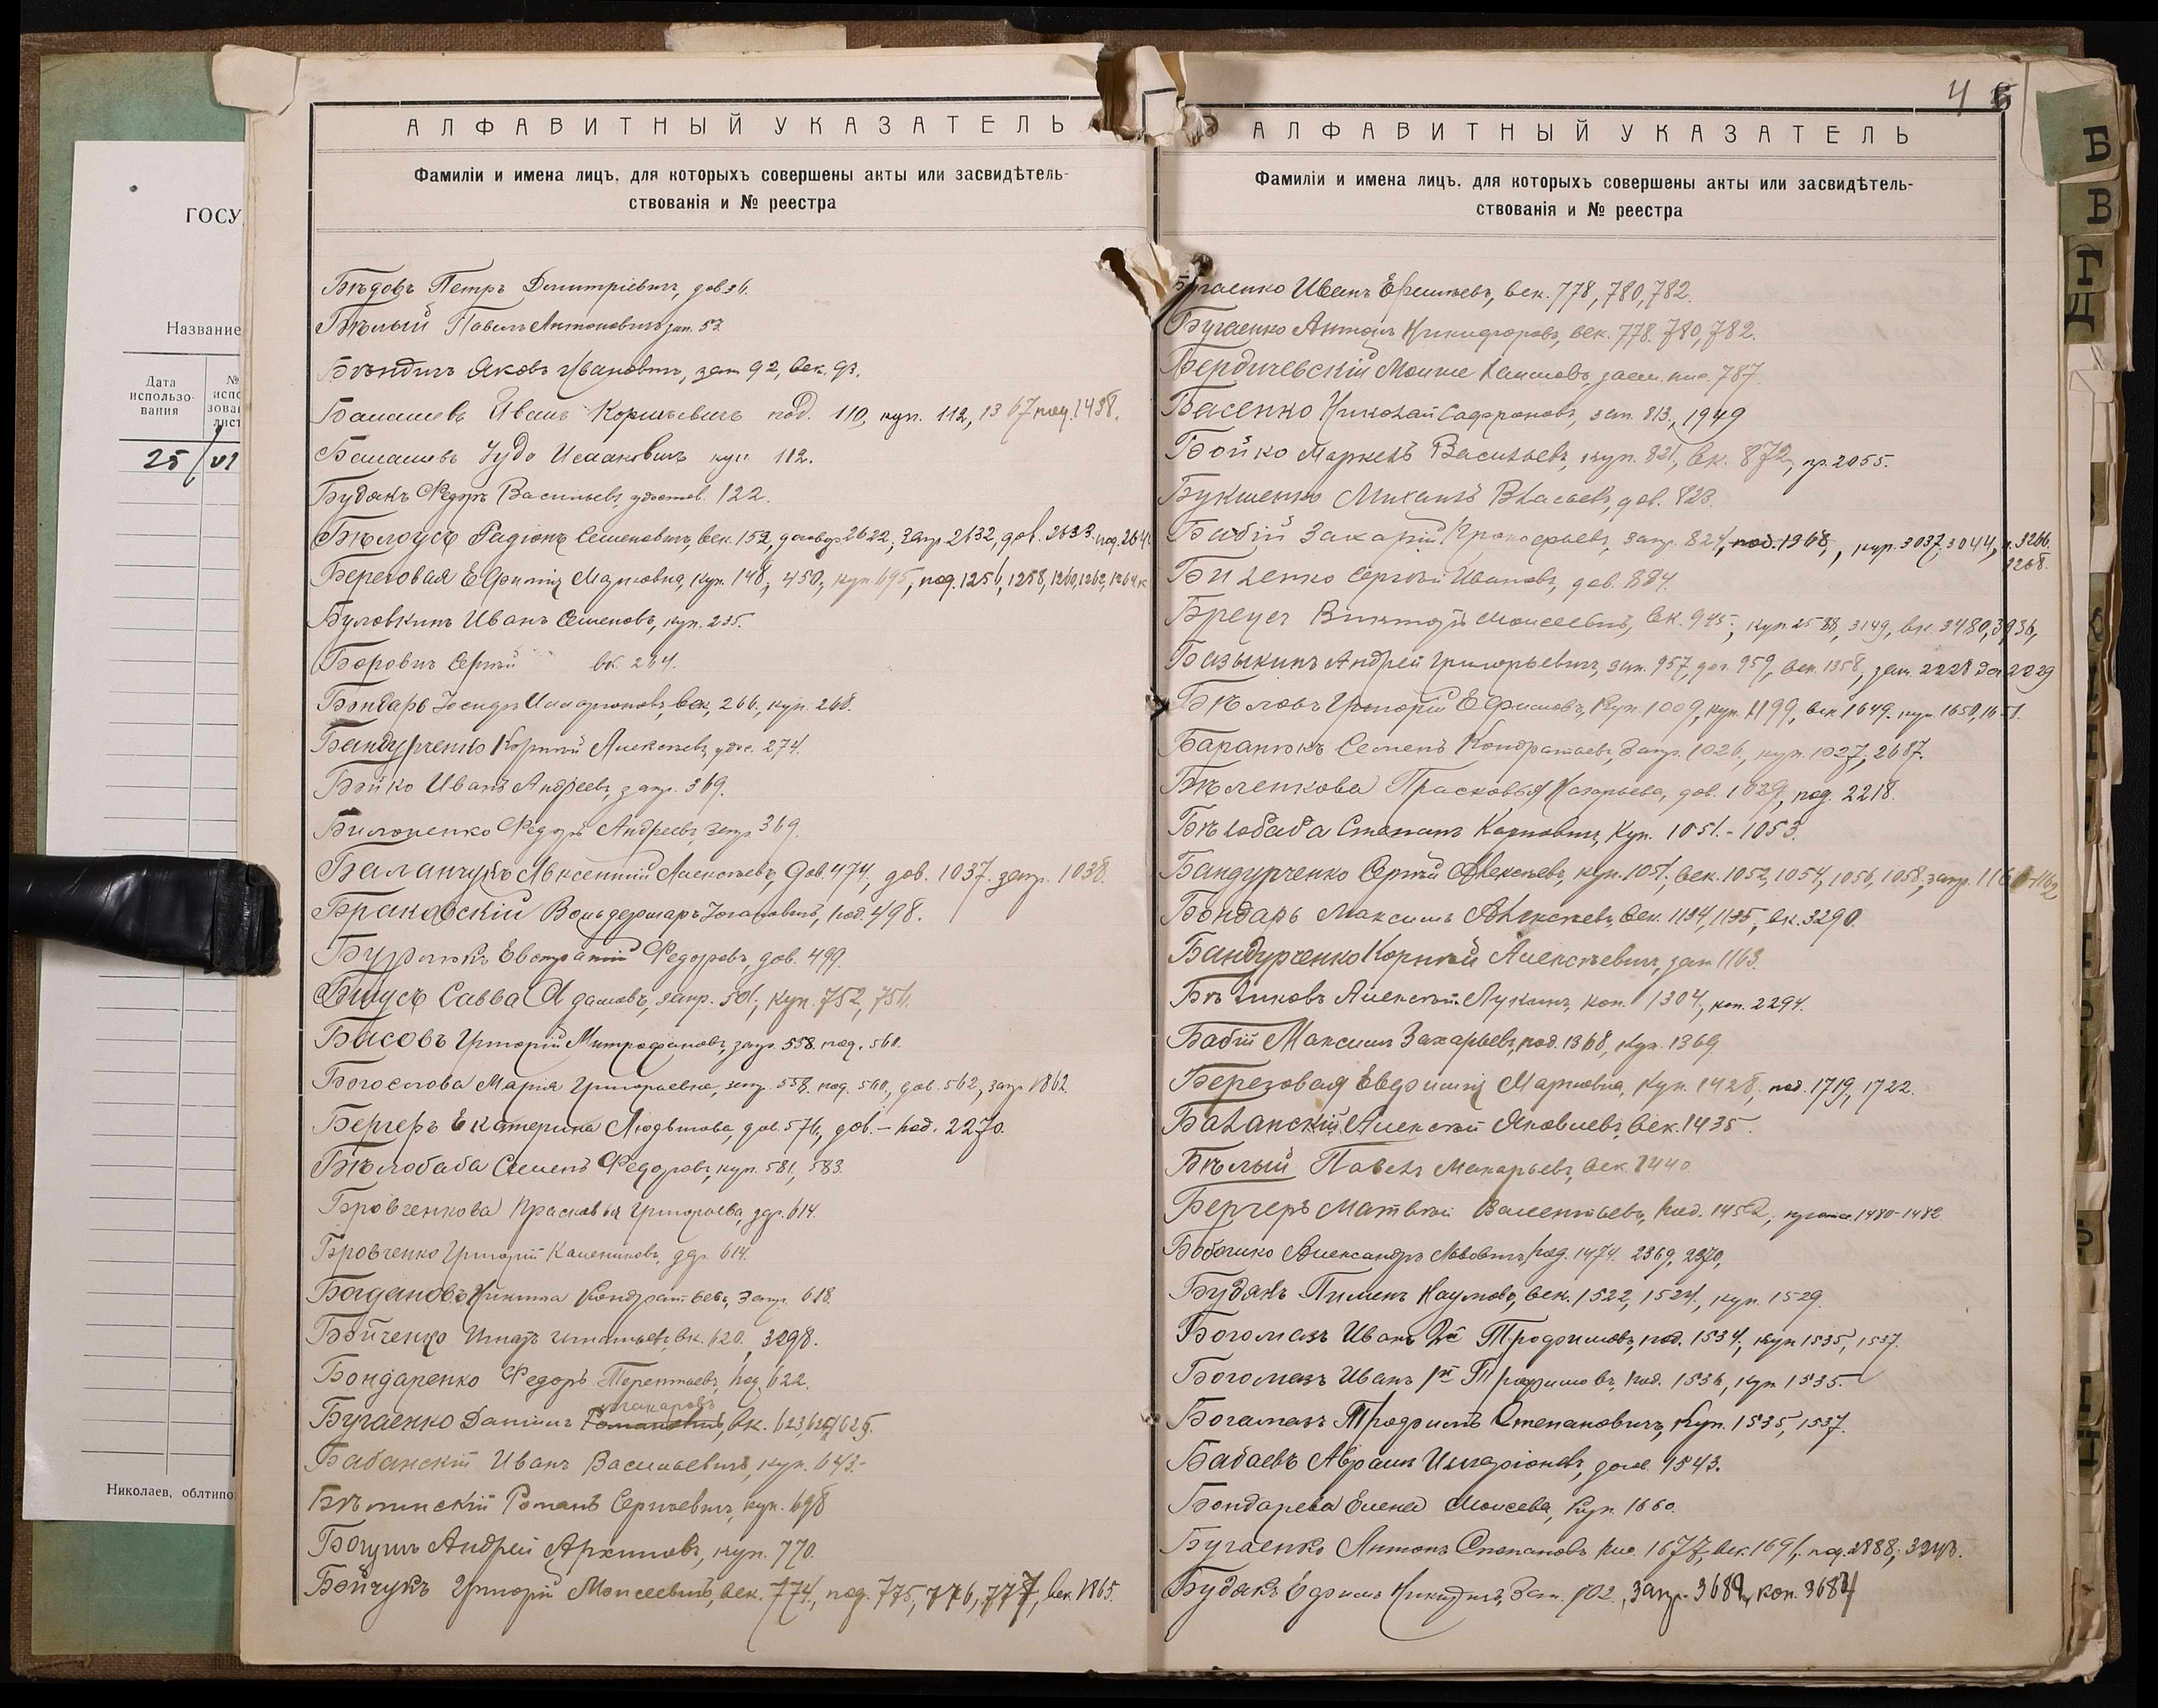 ГОСУ
Название
Дата использо- вания
№ испо зова лист
25/VI
Николаев, облтипо
АЛФАВИТНЫЙ УКАЗАТЕЛЬ
Фамиліи и имена лицъ, для которыхъ совершены акты или засвидѣтель-
ствованія и № реестра
Бѣдовъ Петръ Димитріевичъ, дов. 36.
Бѣлый Павелъ Антоновичъ зап. 53.
Яковъ Ивановичъ, зап 92, век. 93.
Балашевъ Иванъ под. 110, куп. 112, 1367 под. 1438.
Балашевъ Іуда Исааковичъ куп 112.
Будякъ Федоръ Васильевъ, удостов. 122.
Бѣлоусъ Радіонъ Семеновичъ, век. 152, 2622, запр 2632, дов. 2633, под. 264
Береговая Евфимія Марковна, куп. 148, 450, куп 695, под. 1256, 1258, 1260, 1262, 1264
Буловкинъ Иванъ Семеновъ, куп. 235.
Боровичъ Сергѣй вк. 264.
Бондарь Іосифъ Илларіоновъ, век. 266, куп. 268.
Бандурченко Корнѣй Алексѣевъ, удос. 274.
Бойко Иванъ Андреевъ, запр. 369.
Федоръ Андреевъ, запр 369.
Баланчукъ Авксентій Алексѣевъ, дов. 474, дов. 1037. запр. 1038.
Браковскій Вольдемаръ Іогановичъ, под. 498.
Евстратій Федоровъ, дов. 499.
Савва Адамовъ, запр. 501, куп. 752, 751.
Басовъ Григорій Митрофановъ, запр. 558. под. 561.
Богослова Марія Григорьевна, запр. 558. под. 560, дов. 562, запр 1862.
Бергеръ Екатерина Людвигова, дов. 576, дов. – под. 2270.
Бѣлобаба Семенъ Федоровъ, куп. 581, 583.
Бровченкова Прасковья Григорьева, 614.
Бровченко Григорій 614.
Богдановъ Никита Кондратьевъ, запр. 618.
Бойченко Игнатъ Игнатьевъ, вк. 620, 3298.
Бондаренко Федоръ Терентьевъ, под. 622.
Макаровъ
Бугаенко Даніилъ Романовичъ, вк. 623, 625.
Бабанскій Иванъ Васильевичъ, куп. 643.-
Бѣлинскій Романъ Сергѣевичъ, куп. 698
Богушъ Андрей Архиповъ, куп. 770.
Бойчукъ Григорій Моисеевичъ, век. 774, под. 775, 776, 777, век 1865.
4 5
АЛФАВИТНЫЙ УКАЗАТЕЛЬ
Фамиліи и имена лицъ, для которыхъ совершены акты или засвидѣтель-
ствованія и № реестра
Бугаенко Иванъ Ефимьевъ, век. 778, 780, 782.
Бугаенко Антонъ Никифоровъ, век. 778. 780, 782.
Бердичевскій Моише Хаимовъ, 787.
Басенко Николай Сафроновъ, зап. 813, 1949
Бойко Маркелъ Васильевъ, куп. 821, вк. 872, пр. 2055.
Букшенко Михаилъ Власьевъ, дов. 823.
Бабій Захарій Прокофьевъ, запр. 824, под. 1368, куп. 3037, 3044, 3266.
3268.
Биленко Сергѣй Ивановъ, дов. 884.
Викторъ Моисеевичъ, вк. 945, куп. 2588, 3149, вк. 3480, 3936,
Базыкинъ Андрей Григорьевичъ, зап. 957, дог. 959, век. 1358, зап. 2228 до 2229
Бѣловъ Григорій Ефимовъ, куп. 1009, куп. 1199, век 1649. куп. 1650, 1651.
Баранюкъ Семенъ Кондратьевъ, запр. 1026, куп. 1027, 2687.
Бѣленкова Прасковья Назарьева, дов. 1029, под. 2218.
Бѣлобаба Степанъ Карповичъ, куп. 1051.-1053.
Бандурченко Сергѣй Алексѣевъ, куп. 1051, век. 1052, 1054, 1056, 1058, запр. 1160-1162
Бондарь Максимъ Алексѣевъ, век. 1134, 1135, вк. 3290.
Бандурченко Корнѣй Алексѣевичъ, зап 1163.
Бѣликовъ Алексѣй Лукичъ, коп. 1304, коп. 2294.
Бабій Максимъ Захарьевъ, под. 1368, куп. 1369.
Березовая Евфимія Маркова, куп. 1428, под. 1719, 1722.
Баланскій Алексѣй Яковлевъ, век. 1435.
Бѣлый Павелъ Макарьевъ, век 1440
Бергеръ Матвѣй Валентьевъ, под. 1452, 1480-1482
Александръ Львовичъ, под. 1474. 2369, 2370,
Будякъ Пименъ Наумовъ, век. 1522, 1524, куп. 1529.
Богомазъ Иванъ 2й Трофимовъ, под. 1534, куп 1535, 1537.
Богомазъ Иванъ 1й Трофимовъ, под. 1536, куп 1535.
Богамазъ Трофимъ Степановичъ, куп. 1535, 1537.
Бабаевъ Авраамъ Илларіоновъ, дов. 1543.
Бондарева Елена Моисева, куп. 1660.
Бугаенко Антонъ Степановъ 1677, век. 1691, под. 2888, 3248.
Будякъ Ефимъ зап. 102, запр. 3682, коп. 3684
Б
В
Г
Д